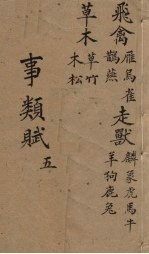 飛禽 雁烏雀
鶴燕
走獸 麟象虎馬牛
羊狗鹿兔
草木 草竹
木松
事類賦 五